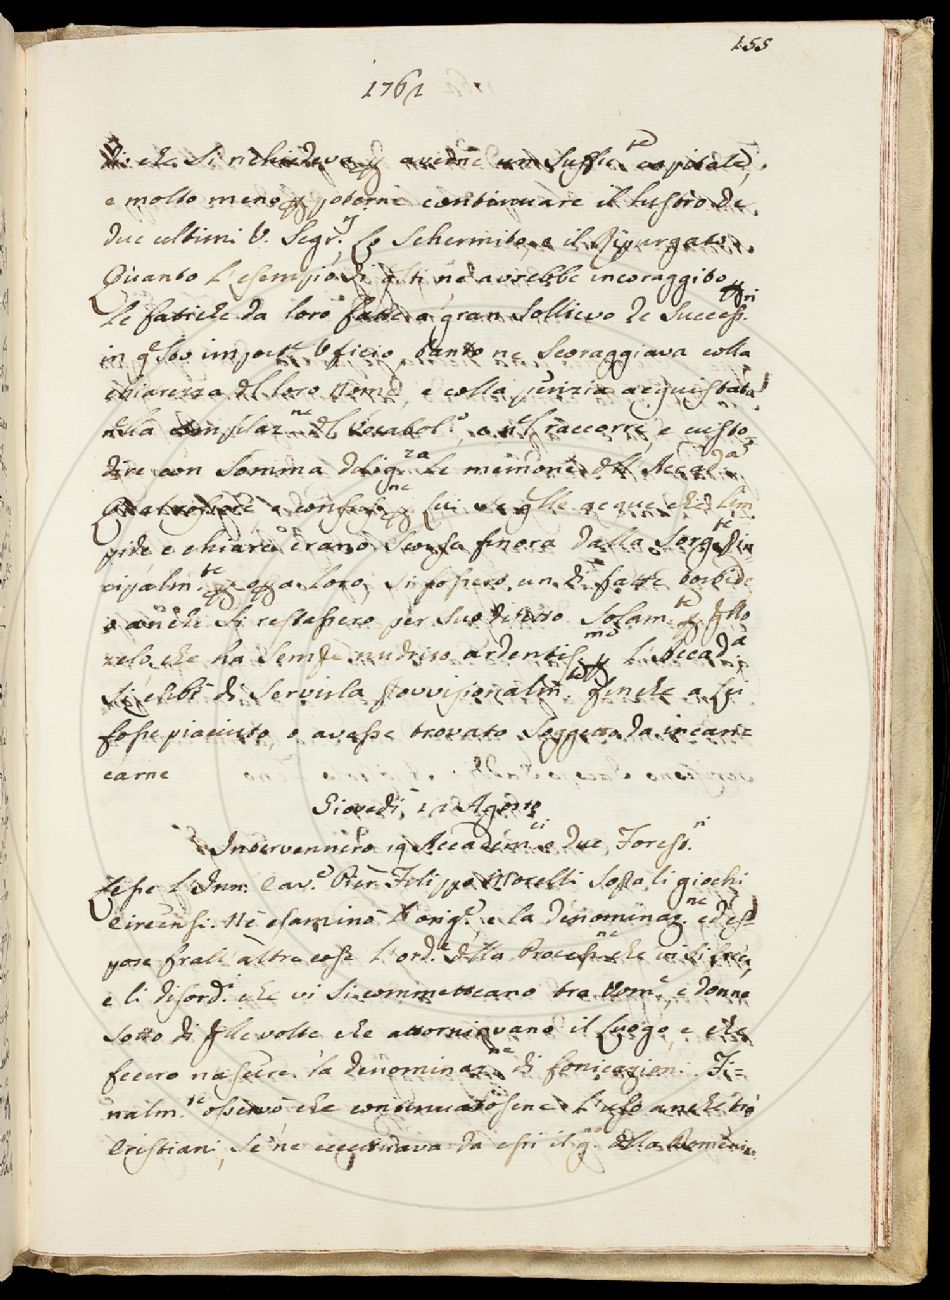 155
1761
che si richiedeva p averne un suffic.te capitale,
e molto meno p poterni continuare il lustro de
due ultimi V. Segr.j Lo Schermito, e il Ripurgato.
Quanto l'esempio di q.ti ne avrebbe incoraggito
le fatiche da loro fatte a gran sollievo de Success.ri
in q.sto import.e Uficio, tanto ne scoraggiava colla
chiarezza del loro nome, e colla perizia acquistata
nella compilaz.ne del Vocabol.o, e nel raccorre, e custo
dire con somma dilig.za le memorie dell'Accad.a
lui che q.lle acque che lim
pide e chiare erano scorse finora dalla Sorg.te
cipalm.te p op.a loro, si fossero un dì fatte torbide
o anche si restassero per suo difetto. Solam.te p q.llo
zelo, che ha sempre nudrito ardentiss.mo p l'Accad.a
si esibì di servirla provvisionalm.te finche a Lei
fosse piaciuto, o avesse trovato soggetto da incari
carne
Giovedì, Agosto
Intervennero 19 Accadem.ci e due Foresti.ri
Lesse l'Inn. Cav.e Pier Filippo Mocelli sopra li giochi
Circensi. Nè esaminò l'orig.e, e la denominaz.ne ed es
pose fra ll'altre cose l'ord.e della Process.ne che vi si facea,
e li disord.i che vi si commetteano tra Uom.i, e donne
sotto di q.lle volte che attorniavano il luogo, e che
fecero nascere la denominaz.ne di fornicazioni. Fi=
nalm.te osservò che continuatosene l'uso anche trà
Cristiani, se ne eccettuava da essi il g.no della Domenica